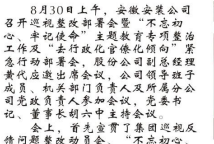 8月30日上午，安徽安装公司
召开巡视整改部署会暨“不忘初
心、牢记使命”主题教育专项整治
工作及“去行政化官僚化倾向”紧
急行动部署会，股份公司副总经理
黄代应邀出席会议，公司领导班子
成员、机关部门负责人及所属分公
司党政负责人参加会议，党委书
记、董事长胡六中主持会议。
会上，首先宣贯了集团巡视反
馈问题整改动员会、“不忘初心、